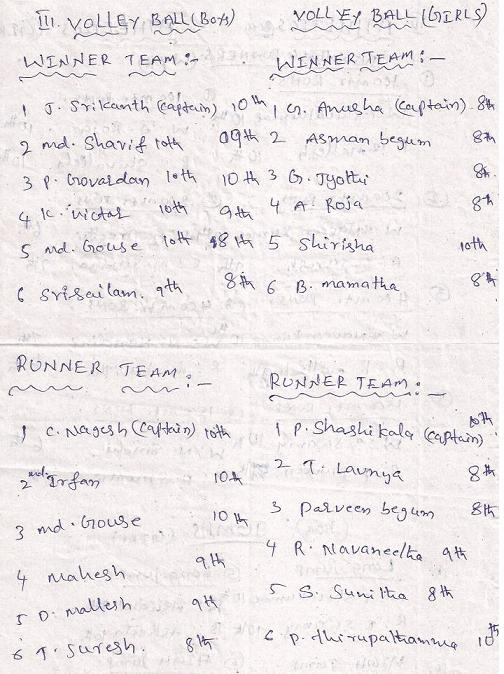 III. VOLLEY BALL (Boys)
WINNER TEAM:-
1 J. Srikanth (captain) 10th
2 md. Sharif 10th 09th
3 P. Govardan 10th 10th
4 K. Victor 10th 9th
5 md. Gouse 10th 8th
6 Srisailam. 9th 8th
RUNNER TEAM:-
1 C. Nagesh (captain) 10th
2 md. Irfan 10th
3 md. Gouse 10th
4 mahesh 9th
5 D. mallesh 9th
6 T. Suresh. 8th
VOLLEY BALL (GIRLS)
WINNER TEAM:-
1 G. Anusha (captain) 8th
2 Asman begum 8th
3 G. Jyothi 8th
4 A. Roja 8th
5 Shirisha 10th
6 B. mamatha 8th
RUNNER TEAM:-
1 P. Shashikala (captain) 10th
2 T. Lavnya 8th
3 Parveen begum 8th
4 R. Navaneetha 9th
5 S. Sunitha 8th
6 P. thirupathamma 10th